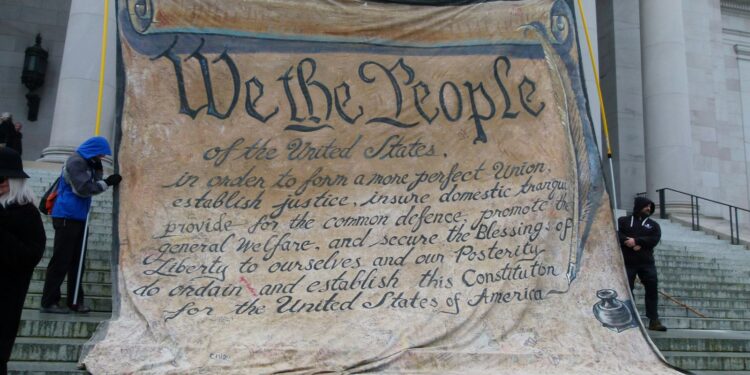 We the People
of the United States,
in order to form a more perfect Union,
establish justice, insure domestic tranqui
provide for the common defence, promote the
general Welfare, and secure the Blessings of
Liberty to ourselves and our Posterity
do ordain and establish this Constituton
for the United States of America